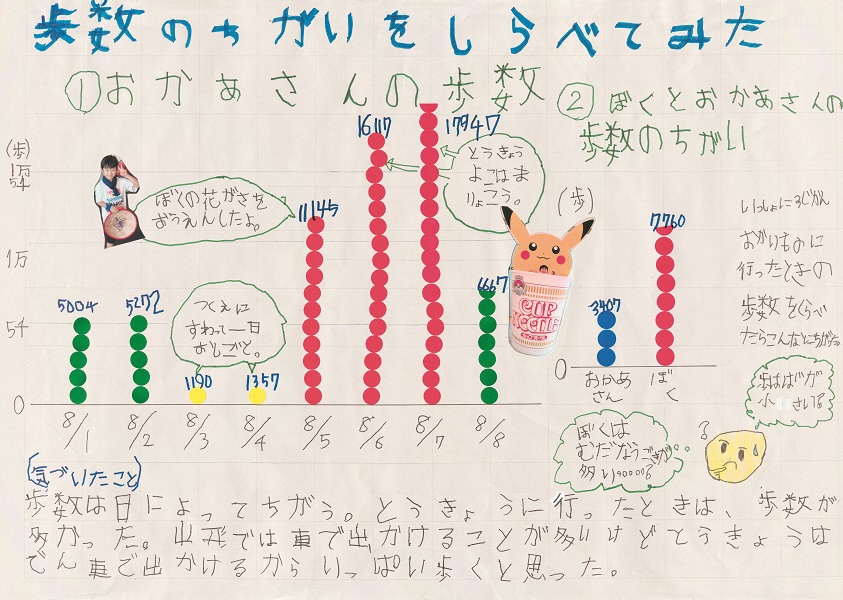 歩数のちがいをしらべてみた
①おかあさんの歩数
②ぼくとおかあさんの
歩数のちがい
(歩)
1万
5千
1万
5千
0
5004
5272
1190
1357
11145
16117
17947
6667
ぼくの花がさを
おうえんしたよ。
つくえに
すわって一日
おしごと。
とうきょう
よこはま
りょこう。
8/1
8/2
8/3
8/4
8/5
8/6
8/7
8/8
CUP
NOODLE
(歩)
0
3407
7760
おかあ
さん
ぼ
く
いっしょに
おかいものに
行ったときの
歩数をくらべ
たらこんなに
歩はばが
小さいから
ぼくは
むだなうごきが
多い
(気づいたこと)
歩数は日によってちがう。とうきょうに行ったときは、歩数が
多かった。山形では車で出かけることが多いけどとうきょうは
でん車で出かけるからいっぱい歩くと思った。